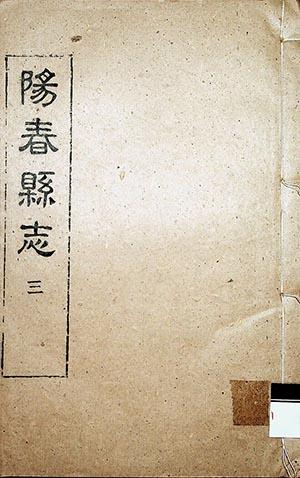 陽春縣志
三